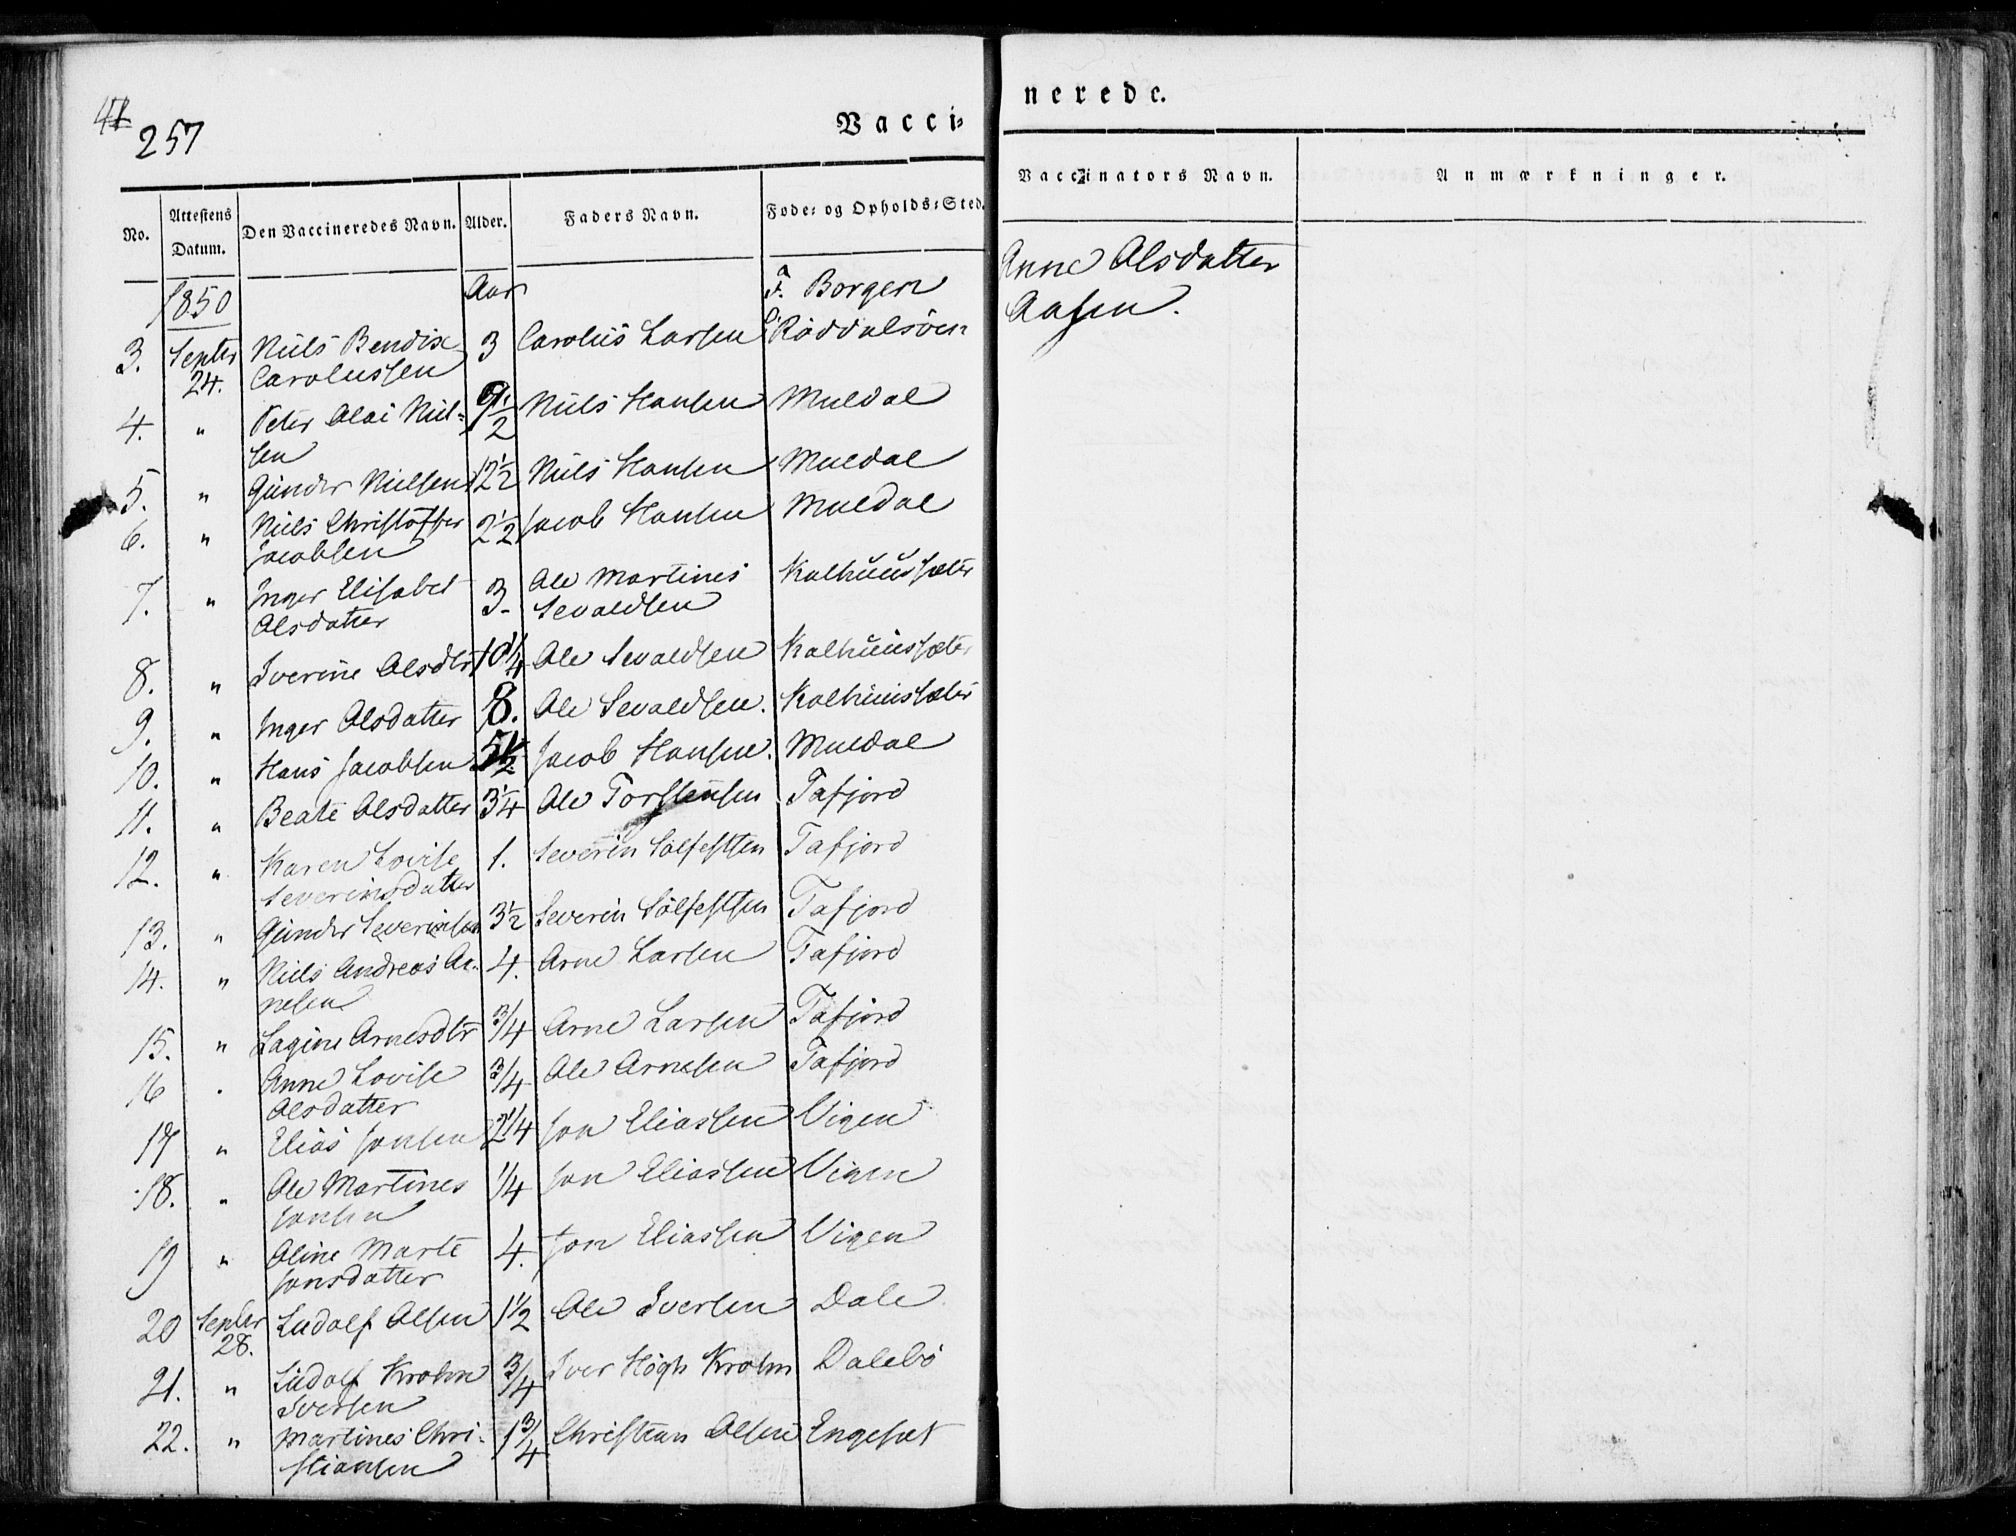 257
Vacci-
nerede.
No.
Attestens Datum.
Den Vaccineredes Navn.
Alder.
Faders Navn.
Føde- og Opholds-Sted.
Vaccinators Navn.
Anmærkninger.
1850 Aar F. Borgen Anne Olsdatter
3. Septbr Niels Bendix 3 Carolus Larsen O: Röddalsöen Aasen.
24. Carolussen
4. " Peter Olai Niel- 1/2 Niels Hansen Muldal
sen
5. " Gunder Nielsen 12 1/2 Niels Hansen Muldal
6. " Niels Christoffer 2 1/2 Jacob Hansen Muldal
Jacobsen
7. " Inger Elisabet 3. Ole Martinus Kalhuussæter
Olsdatter Sevaldsen
8. " Iverine Olsdtr 10 1/4 Ole Sevaldsen Kalhuussæter
9. " Inger Olsdatter 8. Ole Sevaldsen. Kalhuussæter
10. " Hans Jacobsen 5 1/2 Jacob Hansen. Muldal
11. " Beate Olsdatter 3 1/4 Ole Torstensen Tafjord
12. " Karen Lovise 1. Severin Sölfestsen Tafjord
Severinsdatter
13. " Gunder Severinsen 3 1/2 Severin Sölfestsen Tafjord
14. " Niels Andreas Ar- 4. Arne Larsen Tafjord
nesen
15. " Lagine Arnesdtr 3/4 Arne Larsen Tafjord
16 " Anne Lovise 3/4 Ole Arnesen Tafjord
Olsdatter
17 " Elias Jonsen 2 1/4 Jon Eliassen Vigen
18. " Ole Martines 1/4 Jon Eliassen Vigen
Jonsen
19 " Oline Marte 4. Jon Eliassen Vigen
Jonsdatter
20 Septbr Ludolf Olsen 1 1/2 Ole Iversen Dale
28.
21. " Ludolf Krohn 3/4 Iver Högh Krohn Dalebö
Iversen
22. " Martines Chri- 1 3/4 Christian Olsen Engeset
stiansen